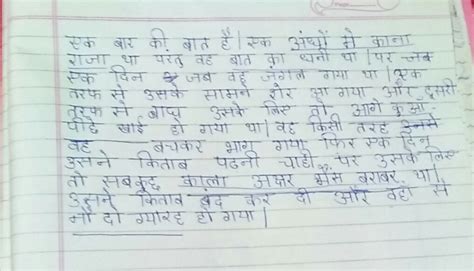 एक बार की बात है। एक अंधों में काना
राजा था परंतु वह बात का धनी था। पर जब
एक दिन जब वह जंगल गया था। एक
तरफ से उसके सामने शेर आ गया और दुसरी
तरफ से बाघ उसके लिए तो आगे कुआ
पीछे खाई हो गया था। वह किसी तरह उनसे
वह बचकर भाग गया फिर एक दिन
उसने किताब पढनी चाही, पर उसके लिए
तो सबकुछ काला अक्षर भैंस बराबर था।
उसने किताब बंद कर दी और वहाँ से
नौ दो ग्यारह हो गया।